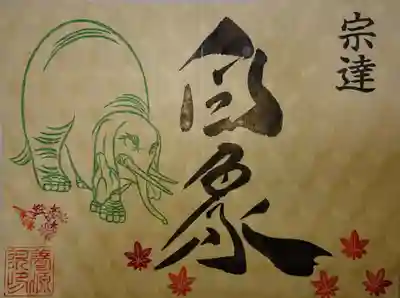 宗達
白象